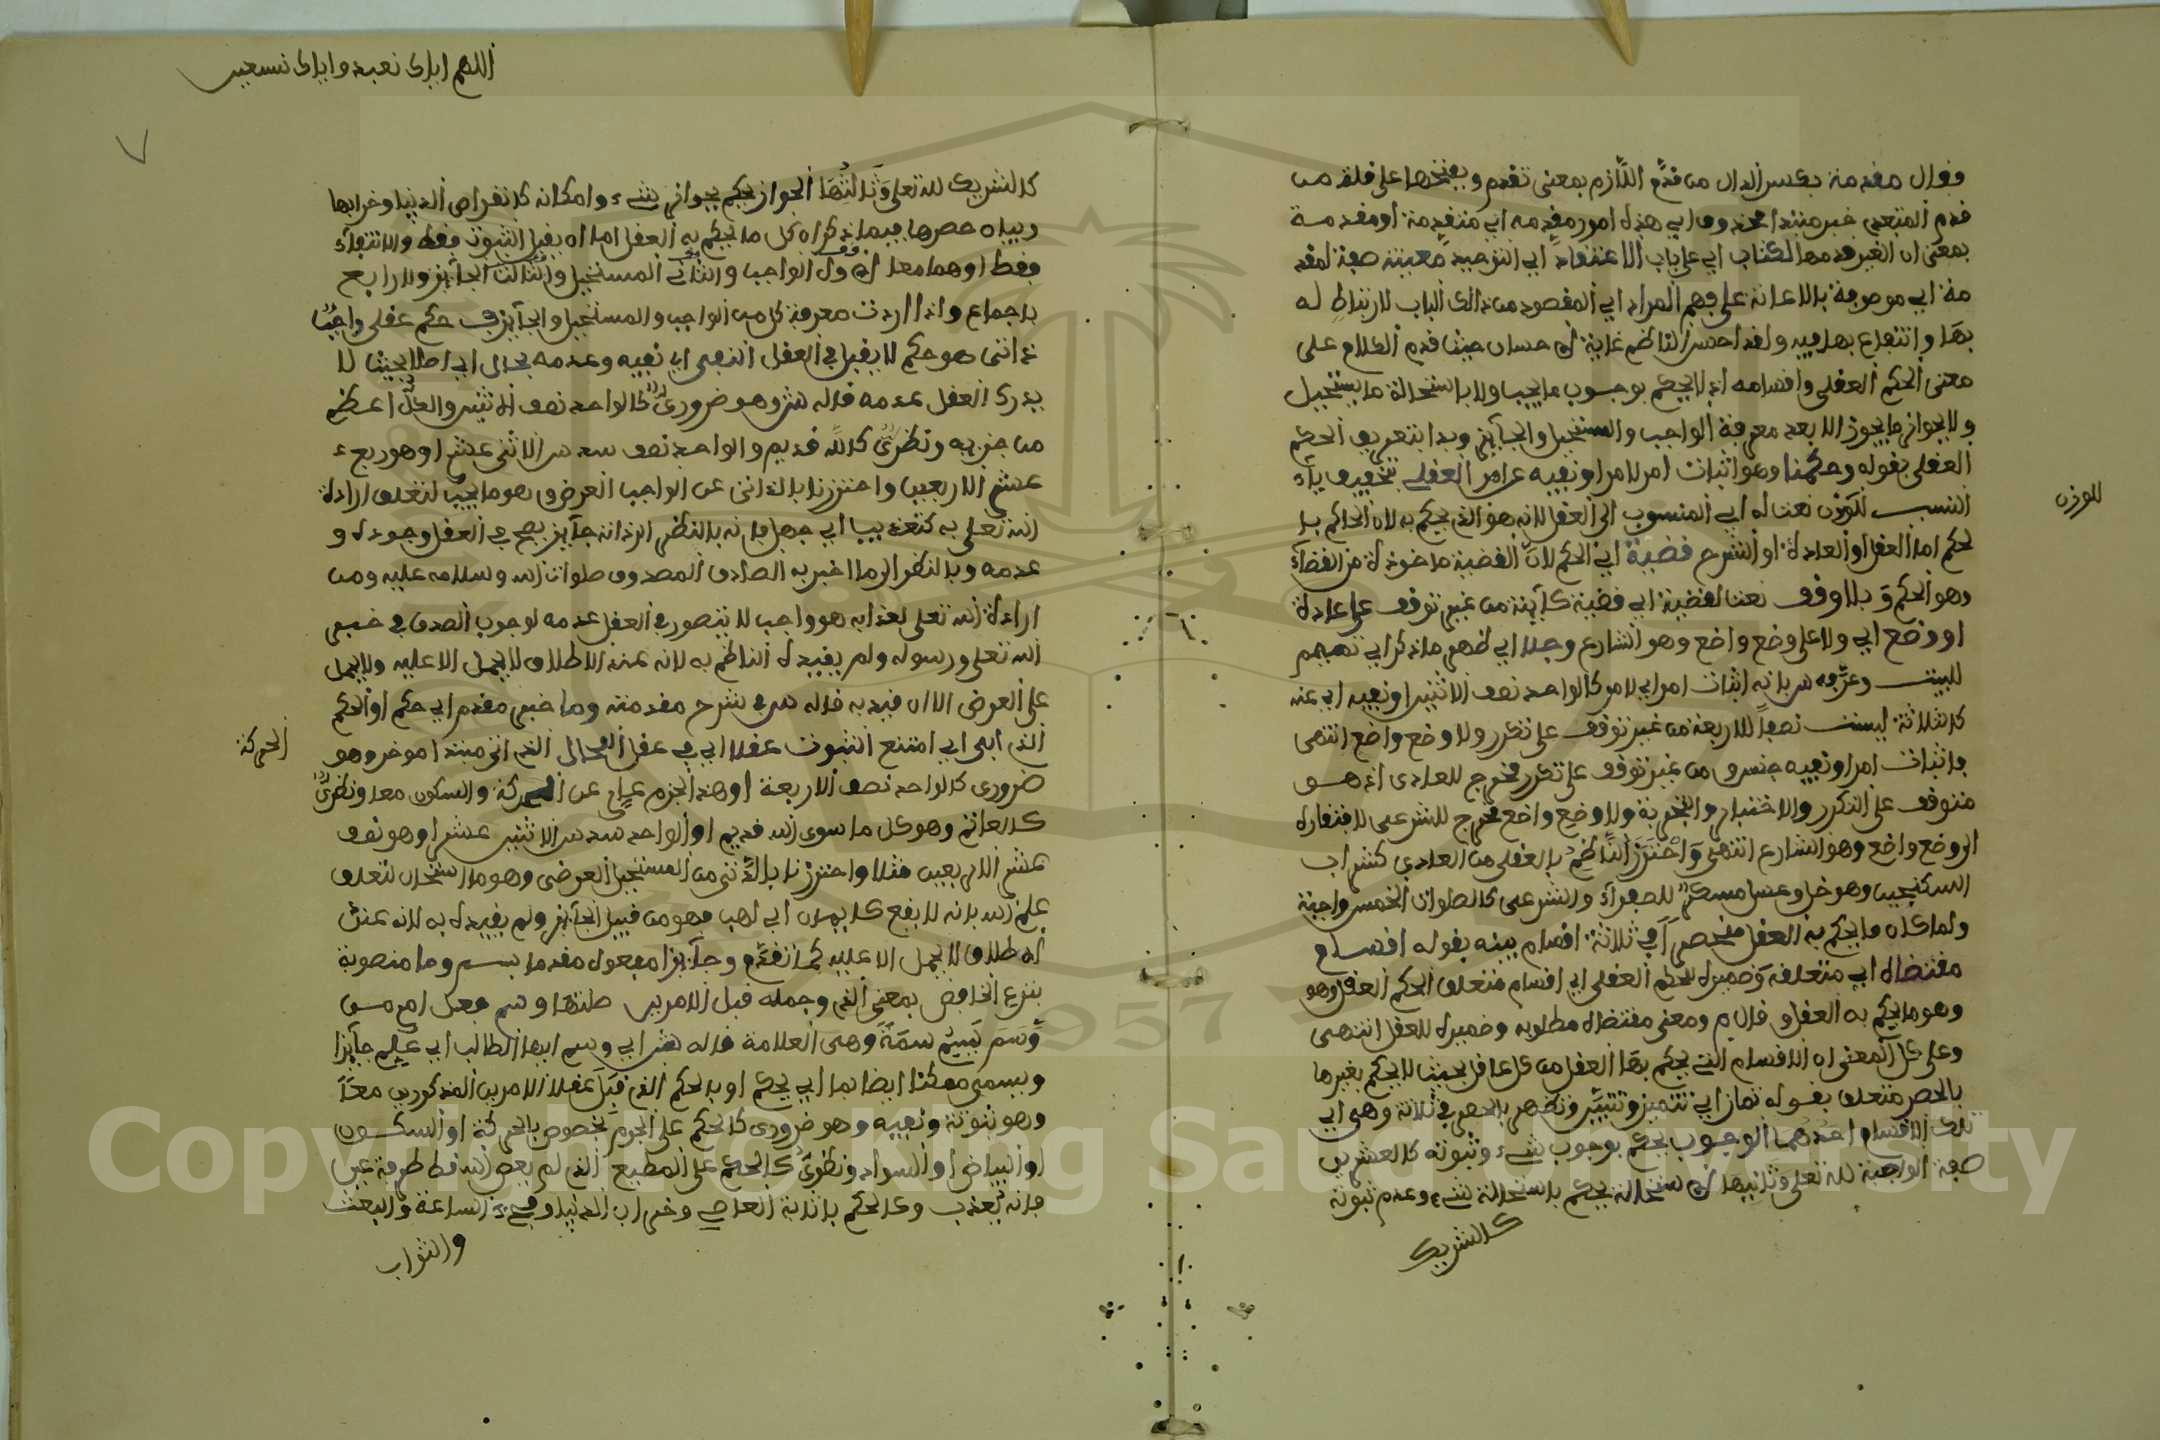 فوله مقدمة بكسر الدال من قدم اللازم بمعنى تقدم وبفتحها على قلة من
قدم المتعدي خبر مبتدا محذوف اي هذه امور مقدمة اي متقدمة او مقدمة
بمعنى ان الغير قدمها لكتاب اي على باب الاعتقاد اي التوحيد معينة صفة لمقد
مة اي موصوفة بالاعانة على فهم المراد اي المقصود من ذالك الباب لارتباط له
بها وانتفاع بها فيه ولقد احسن الناظم غاية الاحسان حيث قدم الكلام على
معنى الحكم العقلي واقسامه اذ لا يحكم بوجوب ما يجب ولا باستحالة ما يستحيل
ولا بجواز ما يجوز الا بعد معرفة الواجب والمستحيل والجايز وبدا بتعريف الحكم
العقلي بقوله وحكمنا وهو اثبات امر لامر او نفيه عن امر العقلي بتخفيف ياء
النسب للوزن نعت له اي المنسوب الى العقل لانه هو الذي يحكم به لان الحاكم با
لحكم اما العقل او العادة او الشرع قضية اي الحكم لان القضية ماخوذة من القضاء
وهو الحكم وبلا وقف نعت لقضية اي قضية كاينة من غير توقف على عادة
او وضع اي ولا على وضع واضع وهو الشارع وجلا اي ظهر ما ذكر اي تتميم
للبيت وعرفه س بانه اثبات امر اي لامر كالواحد نصف الاثنين او نفيه اي عنه
كالثلاثة ليست نصفا للاربعة من غير توقف على تكرر ولا وضع واضع انتهى
واثبات امر او نفيه جنس ومن غير توقف على تكرر مخرج للعادي اذ هو
متوقف على التكرر والاختبار والتجربة ولا وضع واضع مخرج للشرعي لافتقاره
الى وضع واضع وهو الشارع انتهى واحترز الناظم بالعقلي من العادي كشراب
السكنجبين وهو خل وعسل مسكن للصفراء والشرعي كالصلوات الخمس واجبة
ولما كان ما يحكم به العقل منحصرا في ثلاثة اقسام بينه بقوله اقسام
مقتضاه اي متعلقه وضميره للحكم العقلي اي اقسام متعلق الحكم العقلي وهو
وهو ما يحكم به العقل وقال م ومعنى مقتضاه مطلوبه وضميره للعقل انتهى
وعلى كل المعنى ان الاقسام التي يحكم بها العقل من كل عاقل بحيث لا يحكم بغيرها
بالحصر متعلق بقوله تماز اي تتميز وتتبين وتظهر بالحصر في ثلاثة وهي اي
تلك الاقسام احدهما الوجوب يحكم بوجوب شيء وثبوته كالعشرين
صفة الواجبة لله تعلى وثانيها الاستحالة يحكم باستحالة شيء وعدم ثبوته
كالشريك
للوزن
اللهم اياك نعبد واياك نستعين
٧
كالشريك لله تعلى وثالثها الجواز يحكم بجواز شيء وامكانه كانقراض الدنيا وخرابها
وبيان حصرها فيما ذكر ان كل ما يحكم به العقل اما ان يقبل الثبوت فقط والانتفاء
فقط او هما معا الاول الواجب والثاني المستحيل والثالث الجايز ولا رابع
باجماع واذا اردت معرفة كل من الواجب والمستحيل والجايز في حكم عقلي واجب
ذاتى هو حكم لا يقبل في العقل النفي اي نفيه وعدمه بحال اي اصلا بحيث لا
يدرك العقل عدمه قاله ش وهو ضروري كالواحد نصف الاثنين والكل اعظم
من جزءه ونظري كالله قديم والواحد نصف سدس الاثنى عشر او هو ربع
عشر الاربعين واحترزنا بالذاتى عن الواجب العرضي وهو ما يجب لتعلق ارادة
الله تعلى به كتعذيب ابي جهل فانه بالنظر الى ذاته جايز يصح في العقل وجوده و
عدمه وبالنظر الى ما اخبر به الصادق المصدوق صلوات الله وسلامه عليه ومن
ارادة الله تعلى لعذابه هو واجب لا يتصور في العقل عدمه لوجوب الصدق في خبر
الله تعلى ورسوله ولم يقيده الناظم به لانه عند الاطلاق لا يحمل الا عليه ولا يحمل
على العرضي الا ان قيد به قاله س في شرح مقدمته وما خبر مقدم اي حكم او الحكم
الذي ابى اي امتنع الثبوت عقلا اي في عقل المحال الذاتى مبتدا موخر وهو
ضروري كالواحد نصف الاربعة او هذا الجرم عار عن الحركة والسكون معا ونظري
كالعالم وهو كل ما سوى الله قديم او الواحد سدس الاثنى عشر او هو نصف
عشر الاربعين مثلا واحترزنا بالذاتى من المستحيل العرضي وهو ما استحال لتعلق
علم الله بانه لا يقع كايمان ابي لهب فهو من قبيل الجايز ولم يقيده به لانه عند
الاطلاق لا يحمل الا عليه كما تقدم وجايزا مفعول مقدم ل سم وما منصوبة
بنزع الخافض بمعنى الذي وجملة قبل الامرين صلتها وسم فعل امر من
وسم يسم سمة وهي العلامة قاله ش اي وسم ايها الطالب اي علم جايزا
ويسمى ممكنا ايضا بما اي بحكم او بالحكم الذي قبل عقلا الامرين المذكورين معا
وهو ثبوته ونفيه وهو ضروري كالحكم على الجرم بخصوص الحركة او السكون
او البياض او السواد ونظري كالحكم على المطيع الذي لم يعص الله قط طرفة عين
فانه يعذب وكالحكم باثابة العاصي وخراب الدنيا ومجيء الساعة والبعث
والثواب
الحركة
Copyright © King Saud University
1957